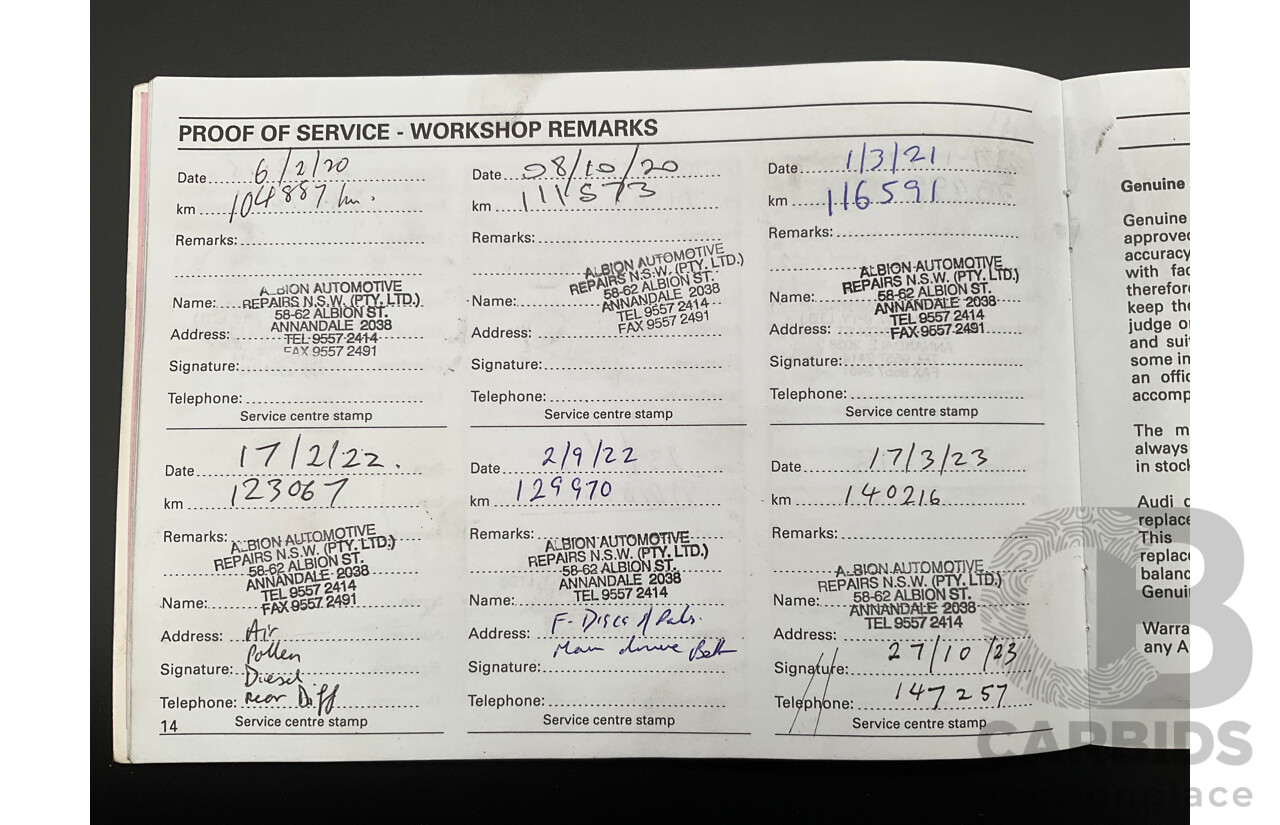 PROOF OF SERVICE - WORKSHOP REMARKS
Date 6/2/20
km 104887 km.
Remarks:
ALBION AUTOMOTIVE
Name: REPAIRS N.S.W. (PTY. LTD.)
58-62 ALBION ST.
ANNANDALE 2038
Address: TEL 9557 2414
FAX 9557 2491
Signature:
Telephone:
Service centre stamp
Date 08/10/20
km 111573
Remarks:
ALBION AUTOMOTIVE
REPAIRS N.S.W. (PTY. LTD.)
58-62 ALBION ST.
Name: ANNANDALE 2038
TEL 9557 2414
Address: FAX 9557 2491
Signature:
Telephone:
Service centre stamp
Date 1/3/21
km 116591
Remarks:
ALBION AUTOMOTIVE
REPAIRS N.S.W. (PTY. LTD.)
Name: 58-62 ALBION ST.
ANNANDALE 2038
TEL 9557 2414
Address: FAX 9557 2491
Signature:
Telephone:
Service centre stamp
Date 17/2/22.
km 123067
Remarks: ALBION AUTOMOTIVE
REPAIRS N.S.W. (PTY. LTD.)
58-62 ALBION ST.
ANNANDALE 2038
TEL 9557 2414
Name: FAX 9557 2491
Address: Air
Pollen
Signature: Diesel
Telephone: rear Diff
14
Service centre stamp
Date 2/9/22
km 129970
Remarks: ALBION AUTOMOTIVE
REPAIRS N.S.W. (PTY. LTD.)
58-62 ALBION ST.
ANNANDALE 2038
Name: TEL 9557 2414
Address: F- Discs / Pads.
Main drive Belt
Signature:
Telephone:
Service centre stamp
Date 17/3/23
km 140216
Remarks:
ALBION AUTOMOTIVE
REPAIRS N.S.W. (PTY. LTD.)
Name: 58-62 ALBION ST.
ANNANDALE 2038
TEL 9557 2414
Address:
Signature: 27/10/23
Telephone: 147257
Service centre stamp
Genuine
Genuine
approved
accuracy
with
therefore
keep the
judge
and
some in
an
The m
always
in stock
Audi
replace
This
replace
Genuin
Warra
any A
CB
CARBIDS
auctionplace